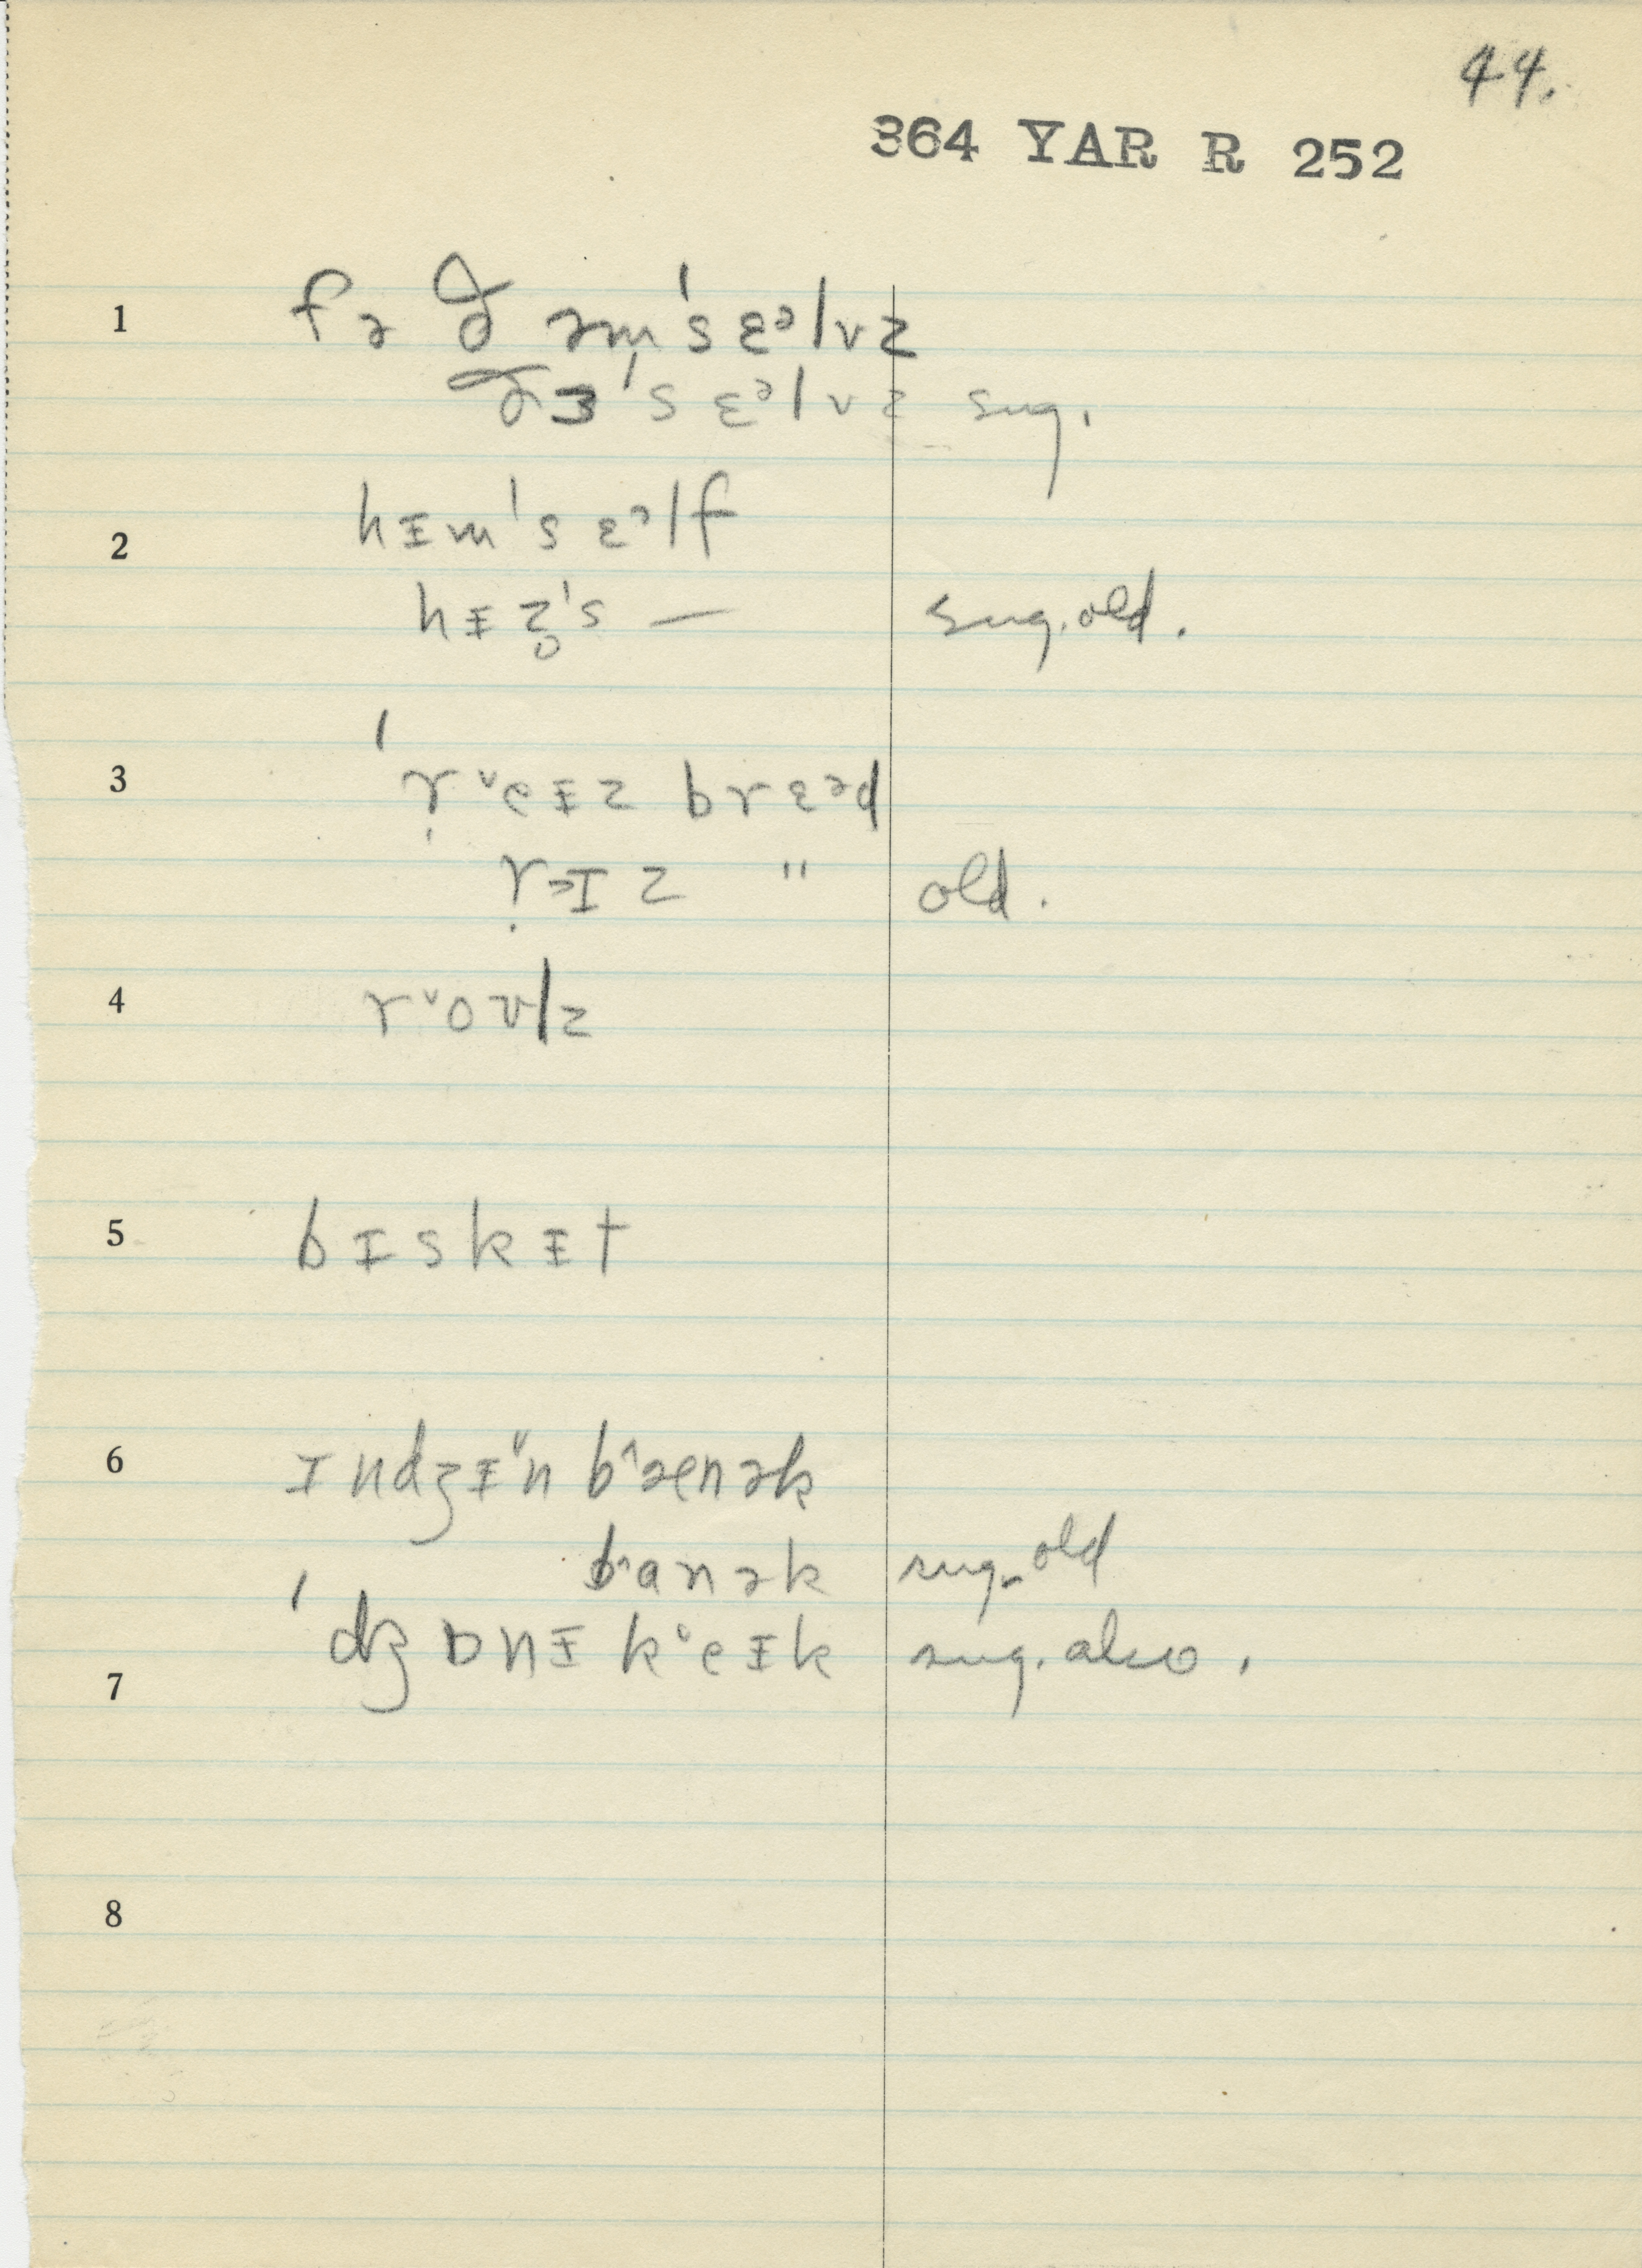 44.
364 YAR R 252
1 fə ðəm's ɛᵊlvz
ðɜ's ɛᵊlvz sug.
2 hɪm's ɛᵊlf
hɪz̥'s — sug. old.
3 ' r̩ ˇeɪz brɛᵊd
r̩ɪz " old.
4 rˇoʊlz
5 bɪskɪt
6 ɪndʒɪˇn bˆænək
bˆanək sug. old
7 'dʒɒnɪ kˇeɪk sug. also.
8